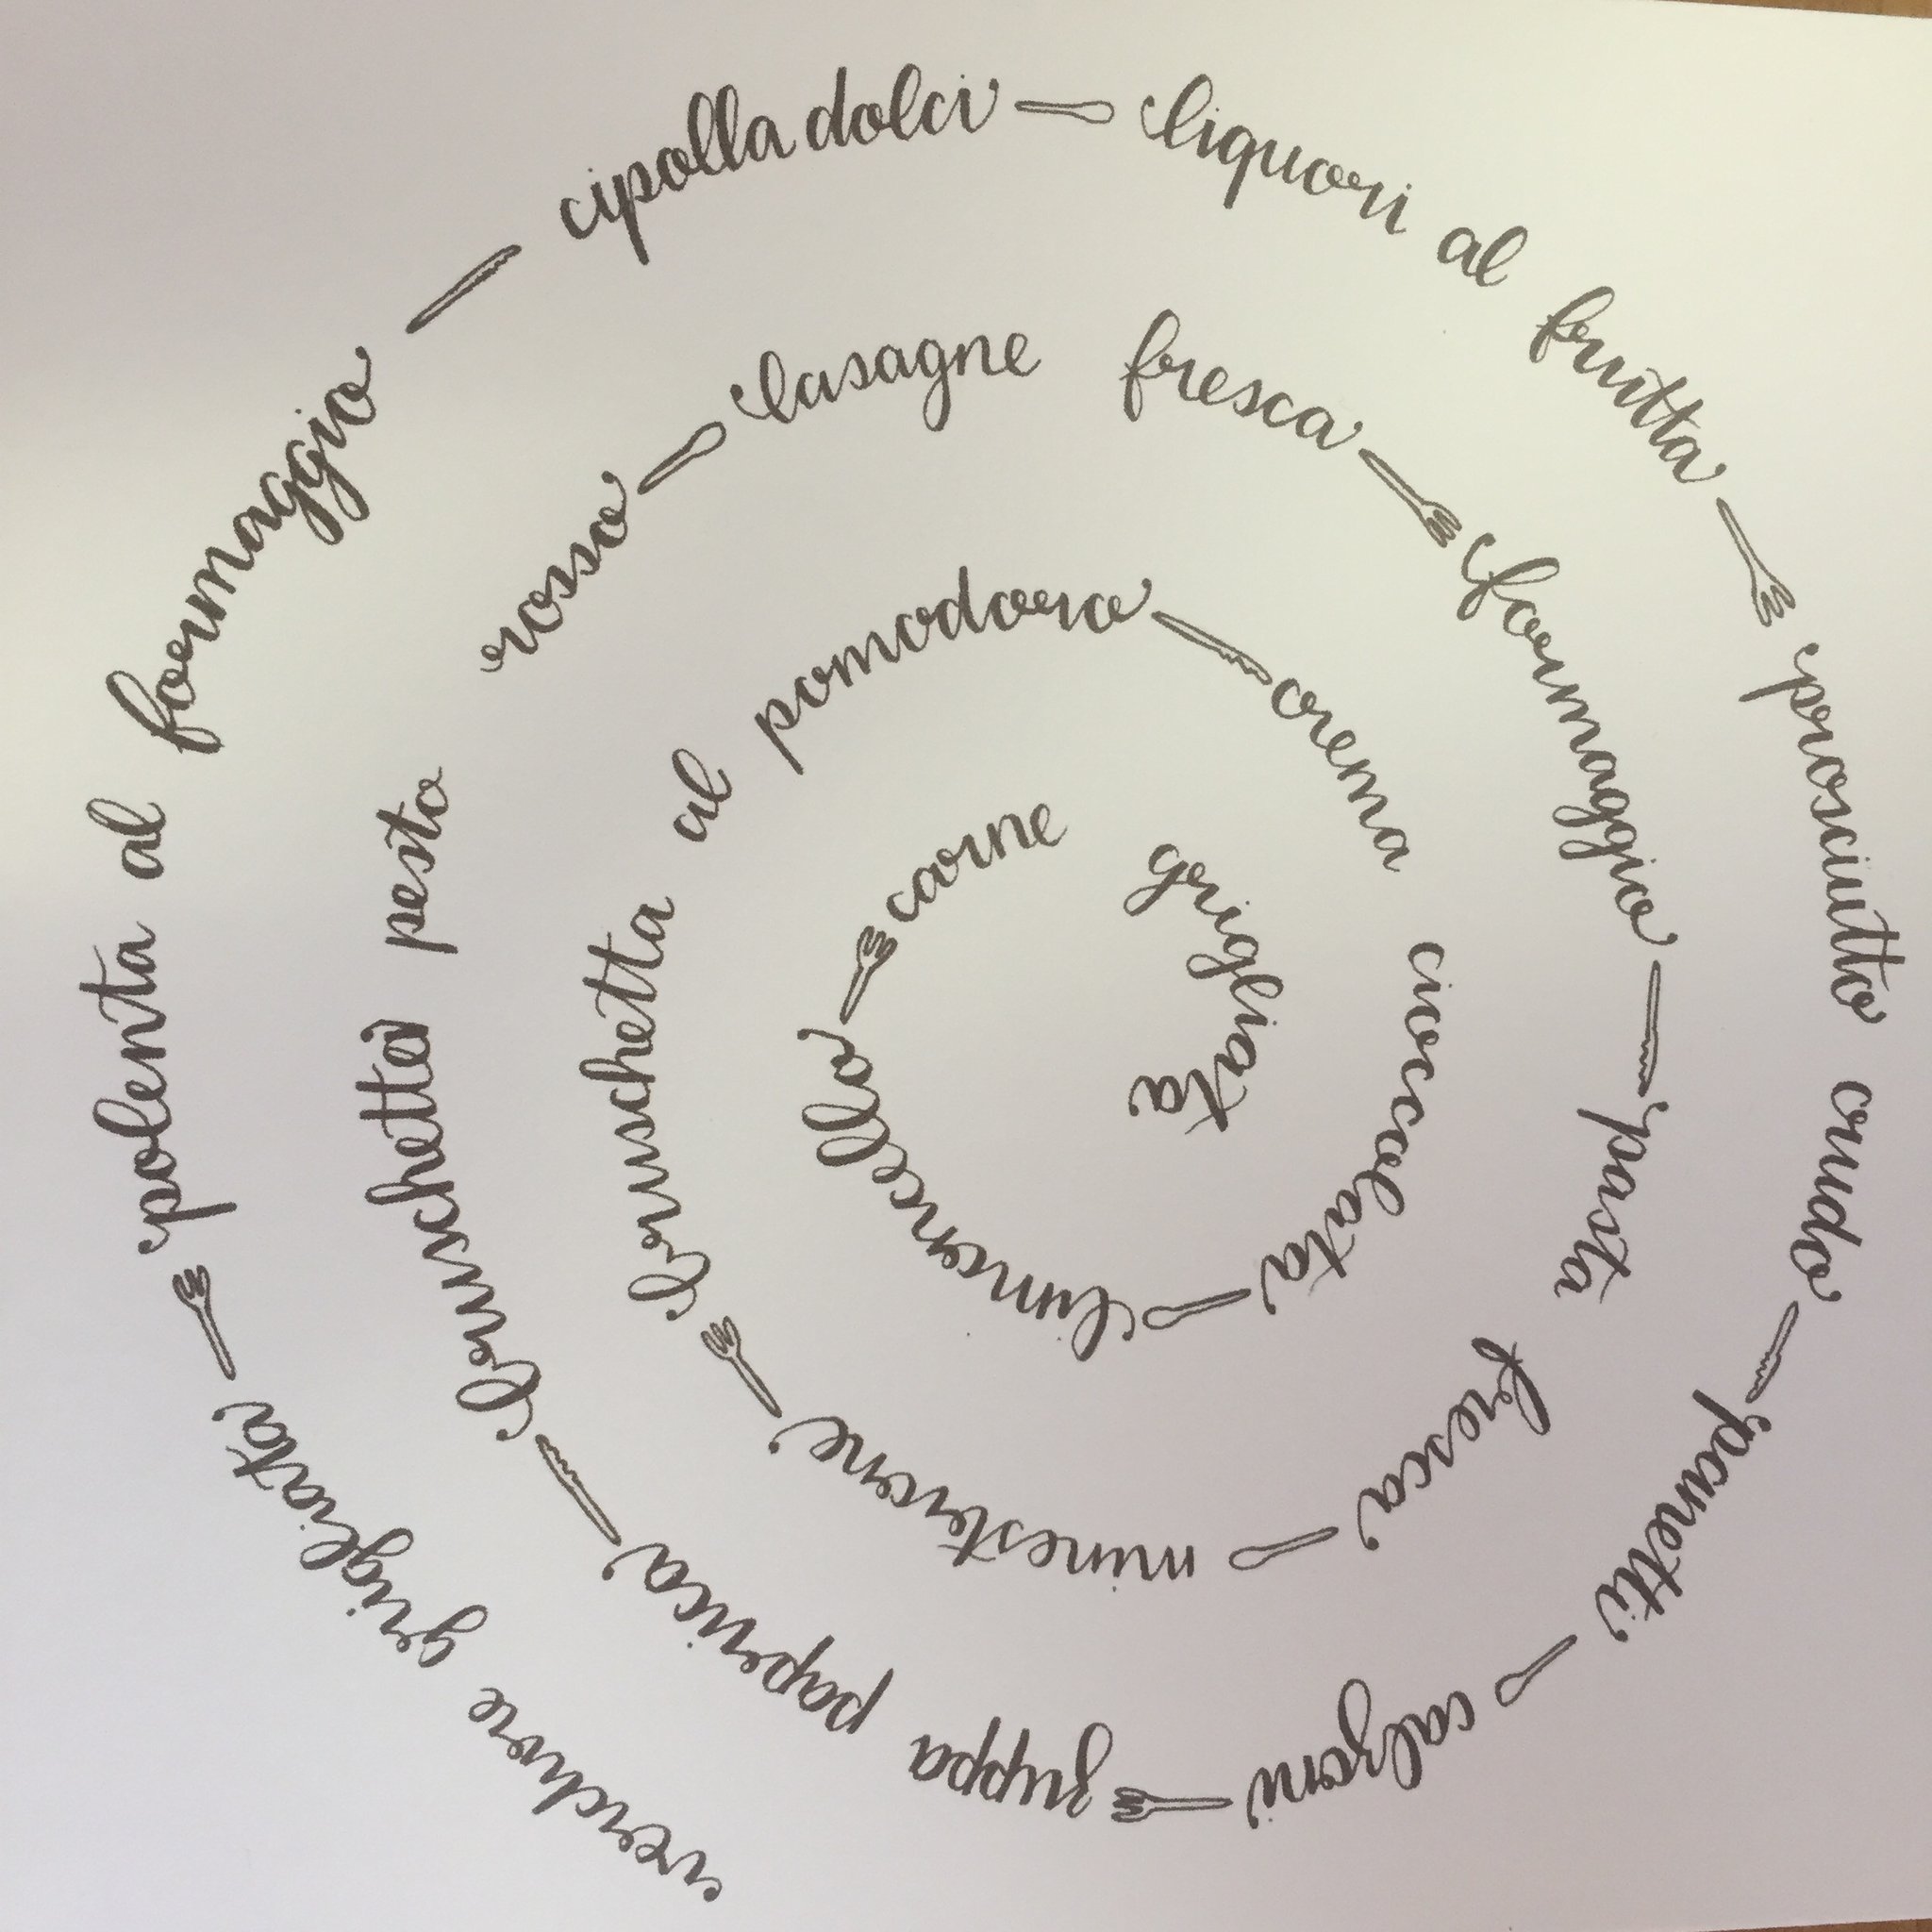 verdure grigliata
polenta al formaggio
cipolla dolci
liquori al frutta
prosciutto crudo
panetti
calzoni
zuppa paperica
bruschetta pesto rosso
lasagne fresca
formaggio
pasta fresca
minesterone
bruschetta al pomodoro
crema cioccolata
limencella
carne grigliata